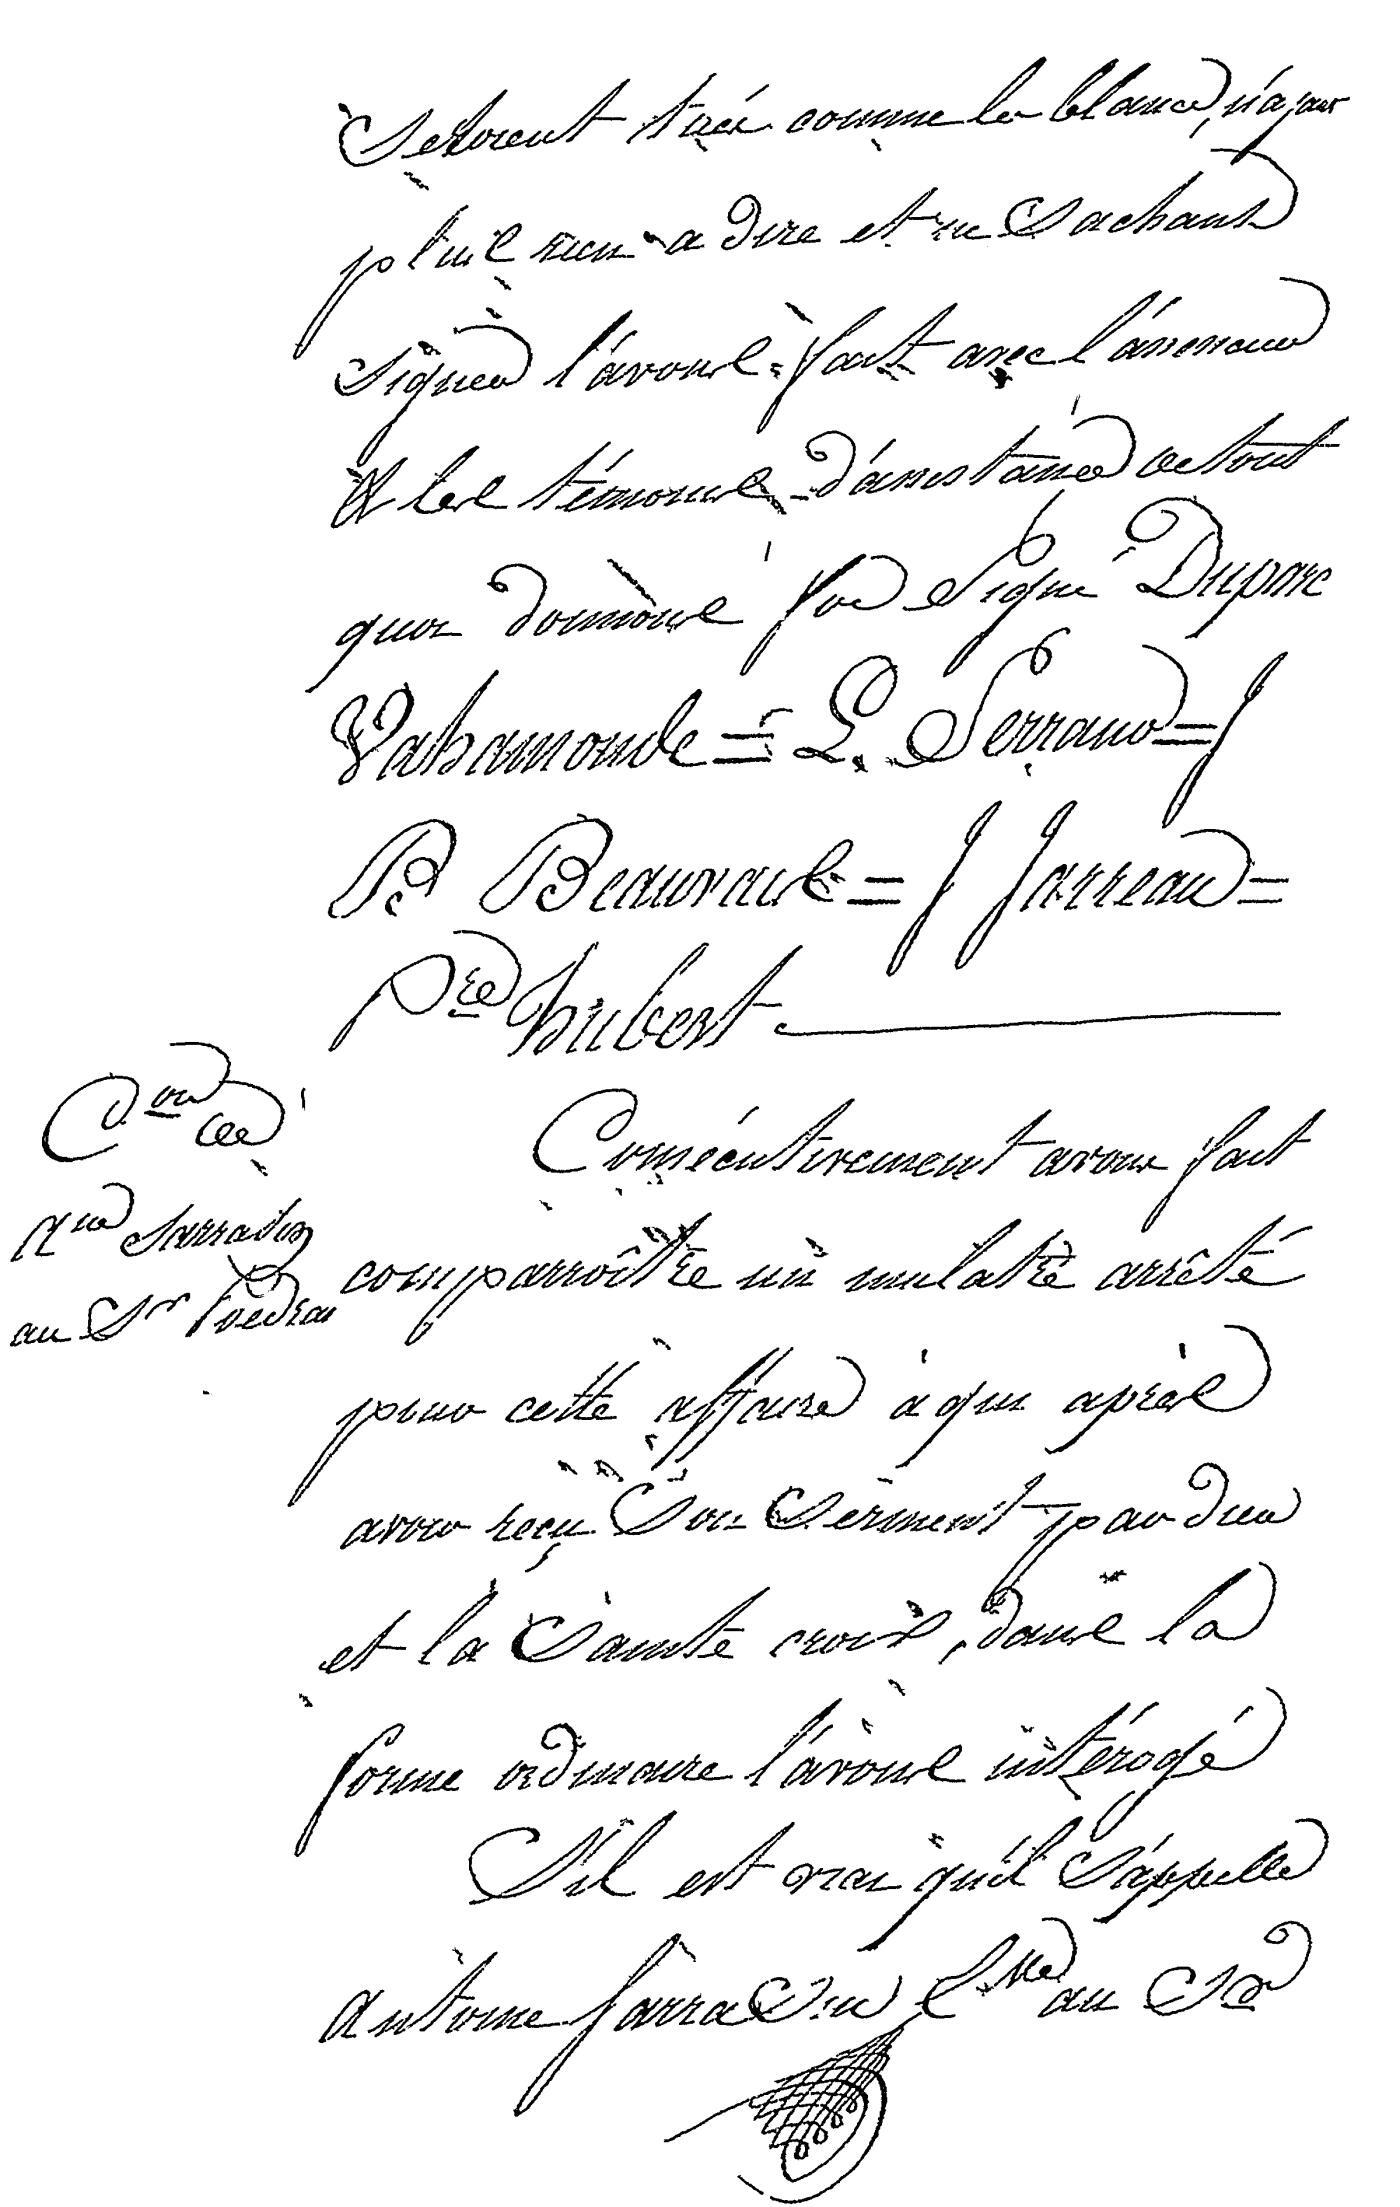 Seroient tuée comme les blancs, n'ajant
plus rien a dire et ne Sachant
Signer l'avons fait avec l'anneau
& les témoins d'assistance de tout
quoi donnons foi Signé Duparc
Vahamonde = L. Serrano = J
Bte Beauvais = J Jarreau =
Pre hubert
Con
des
Ane Sarrasin
au Sr Poedras
Consécutivement avons fait
comparroître un mulatre arrêté
pour cette affaire à qui après
avoir reçu Son Serment par dieu
et la Sainte croix, dans la
forme ordinaire l'avons intérogé
S'il est vrai qu'il S'appelle
Antoine Sarrasin Esve au Sr